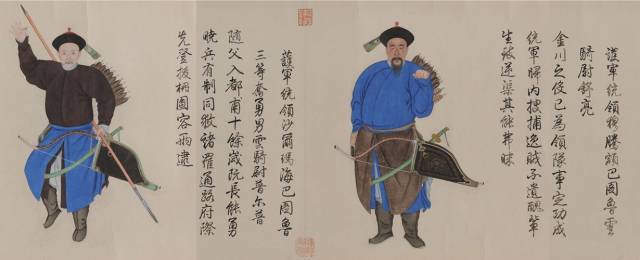 護軍統領穆騰額巴圖魯雲
騎尉舒亮
金川之役已為領隊事定功成
統軍內搜捕逸賊孑遺醜輩
生致逆渠其能弗昧
護軍統領沙爾瑪海巴圖魯
三等奮勇男雲騎尉普爾普
隨父入都甫十餘歲既長能勇
曉兵有制同諸羅通路府際
先登援柵圖容兩逮